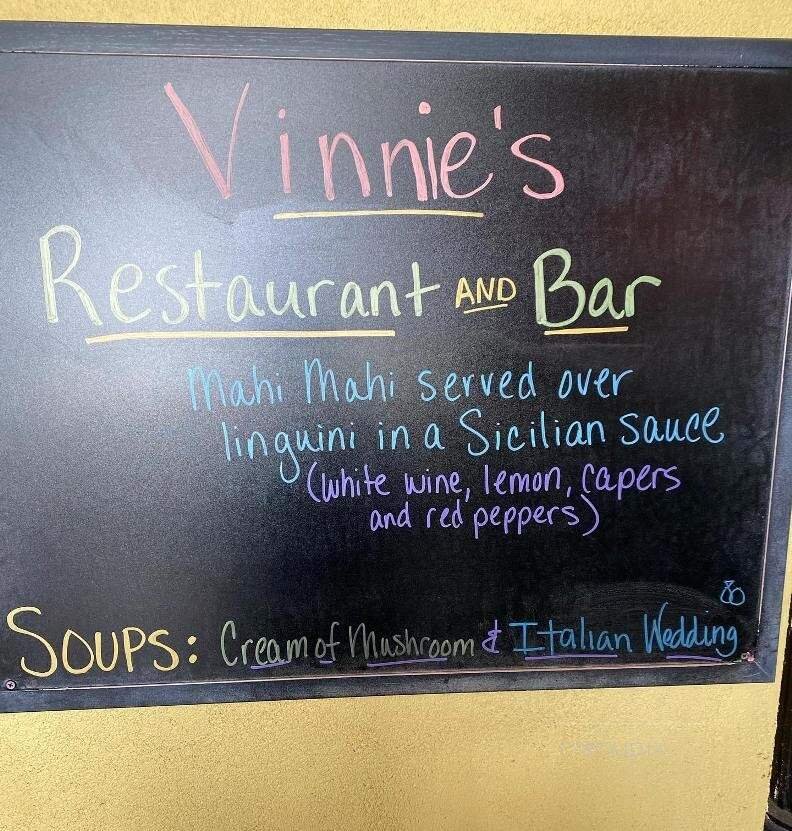 Vinnie's
Restaurant AND Bar
Mahi Mahi served over
linguini in a Sicilian sauce
(white wine, lemon, capers
and red peppers)
SOUPS: Cream of Mushroom & Italian Wedding